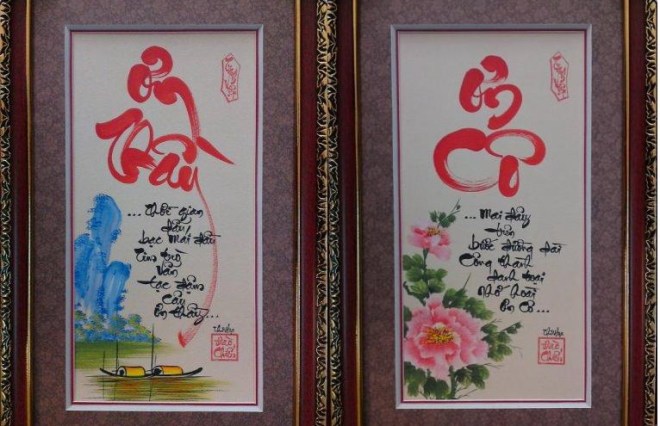 Ơn
Thầy
... Thời gian
dẫu
bạc mái đầu
Tim trò
vẫn
tạc đậm
câu
ơn thầy...
Ơn
Cô
... Mai đây
trên
bước đường dài
Công thành
danh toại
nhớ hoài
ơn cô...